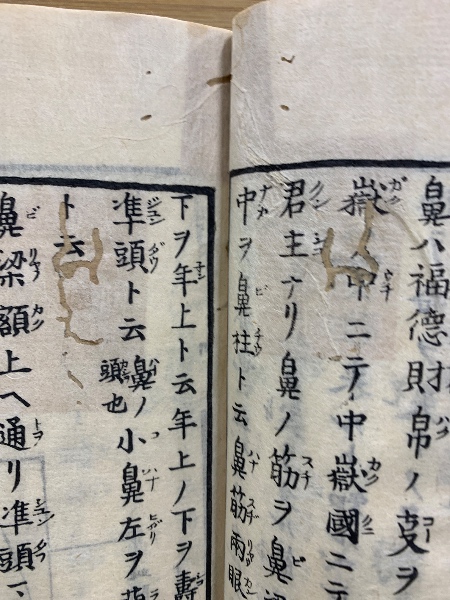 鼻ハ福德財帛ノ
嶽ノ中ニテノ中嶽國ニテ
君主ナリ鼻ノ筋ヲ鼻梁
中ヲ鼻柱ト云鼻筋兩眼
下ヲ年上ト云年上ノ下ヲ壽
準頭ト云鼻ノ頭也小鼻左ヲ
ト云
鼻梁額上ヘ通リ準頭